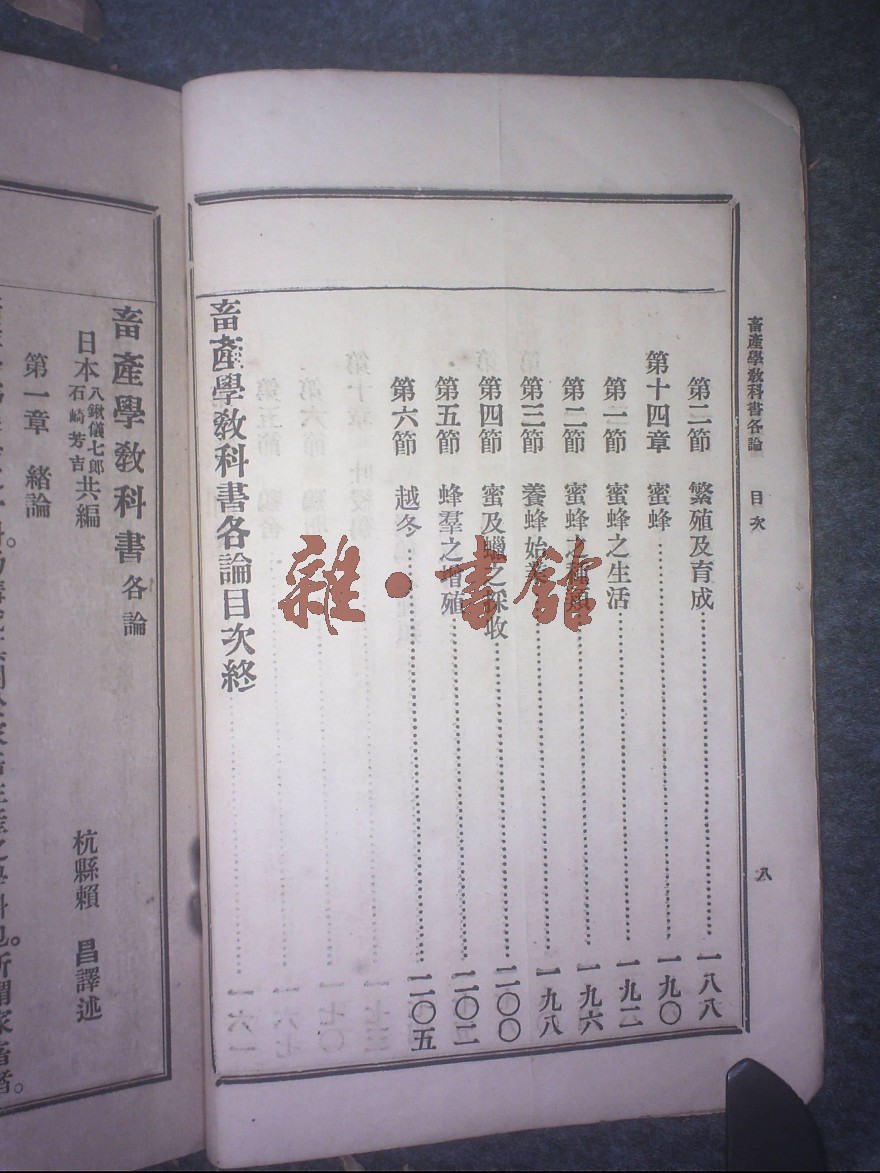 畜產學敎科書各論　目次　八
第二節　繁殖及育成…一八八
第十四章　蜜蜂…一九〇
第一節　蜜蜂之生活…一九二
第二節　蜜蜂之種類…一九六
第三節　養蜂始業…一九八
第四節　蜜及蠟之採收…二〇〇
第五節　蜂羣之增殖…二〇二
第六節　越冬…二〇五
畜產學敎科書各論目次終
雜·書館
畜產學敎科書各論
日本八鍬儀七郎石崎芳吉共編　杭縣賴　昌譯述
第一章　緒論